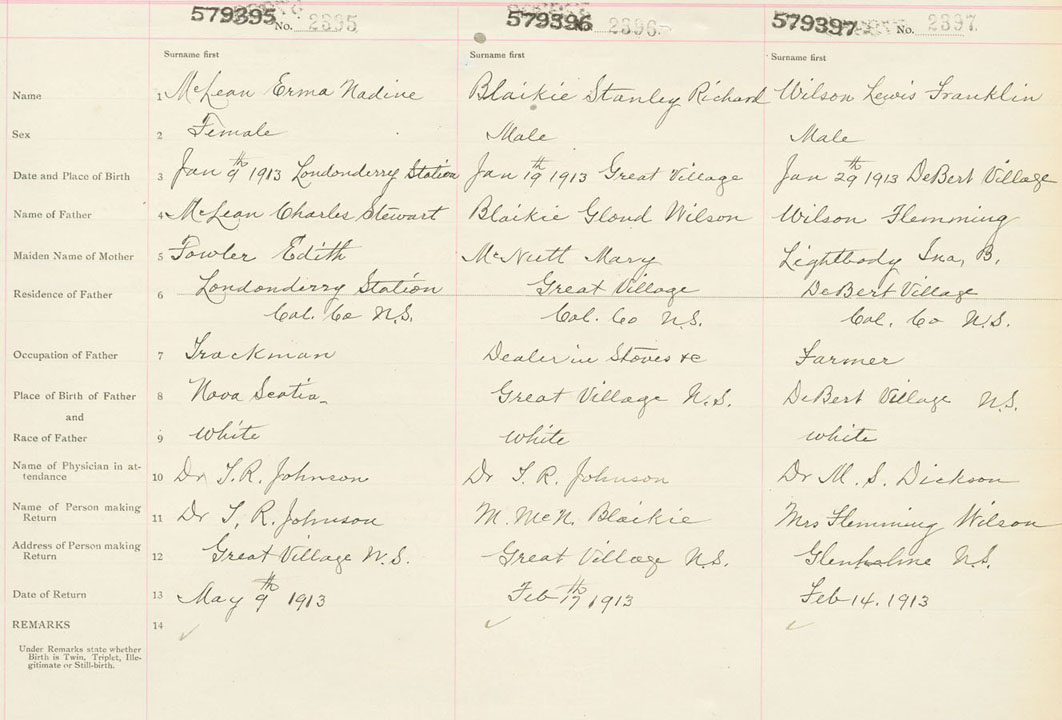 579395 No. 2395 579396 2396 579397 No. 2397
Surname first Surname first Surname first
Name 1 McLean Erma Nadine Blaikie Stanley Richard Wilson Lewis Franklin
Sex 2 Female Male Male
Date and Place of Birth 3 Jan 9th 1913 Londonderry Station Jan 19th 1913 Great Village Jan 29th 1913 DeBert Village
Name of Father 4 McLean Charles Stewart Blaikie Gloud Wilson Wilson Flemming
Maiden Name of Mother 5 Fowler Edith McNutt Mary Lightbody Ina, B.
Residence of Father 6 Londonderry Station Great Village DeBert Village
Col. Co N.S. Col. Co N.S. Col. Co N.S.
Occupation of Father 7 Trackman Dealer in Stoves &c Farmer
Place of Birth of Father 8 Nova Scotia Great Village N.S. DeBert Village N.S.
and
Race of Father 9 white white white
Name of Physician in at-
tendance 10 Dr T.R. Johnson Dr T.R. Johnson Dr M. S. Dickson
Name of Person making
Return 11 Dr T, R. Johnson M. McN. Blaikie Mrs Flemming Wilson
Address of Person making
Return 12 Great Village N.S. Great Village N.S. Glenholme N.S.
Date of Return 13 May 9th 1913 Feb 17th 1913 Feb 14. 1913
REMARKS 14
Under Remarks state whether
Birth is Twin, Triplet, Ille-
gitimate or Still-birth.